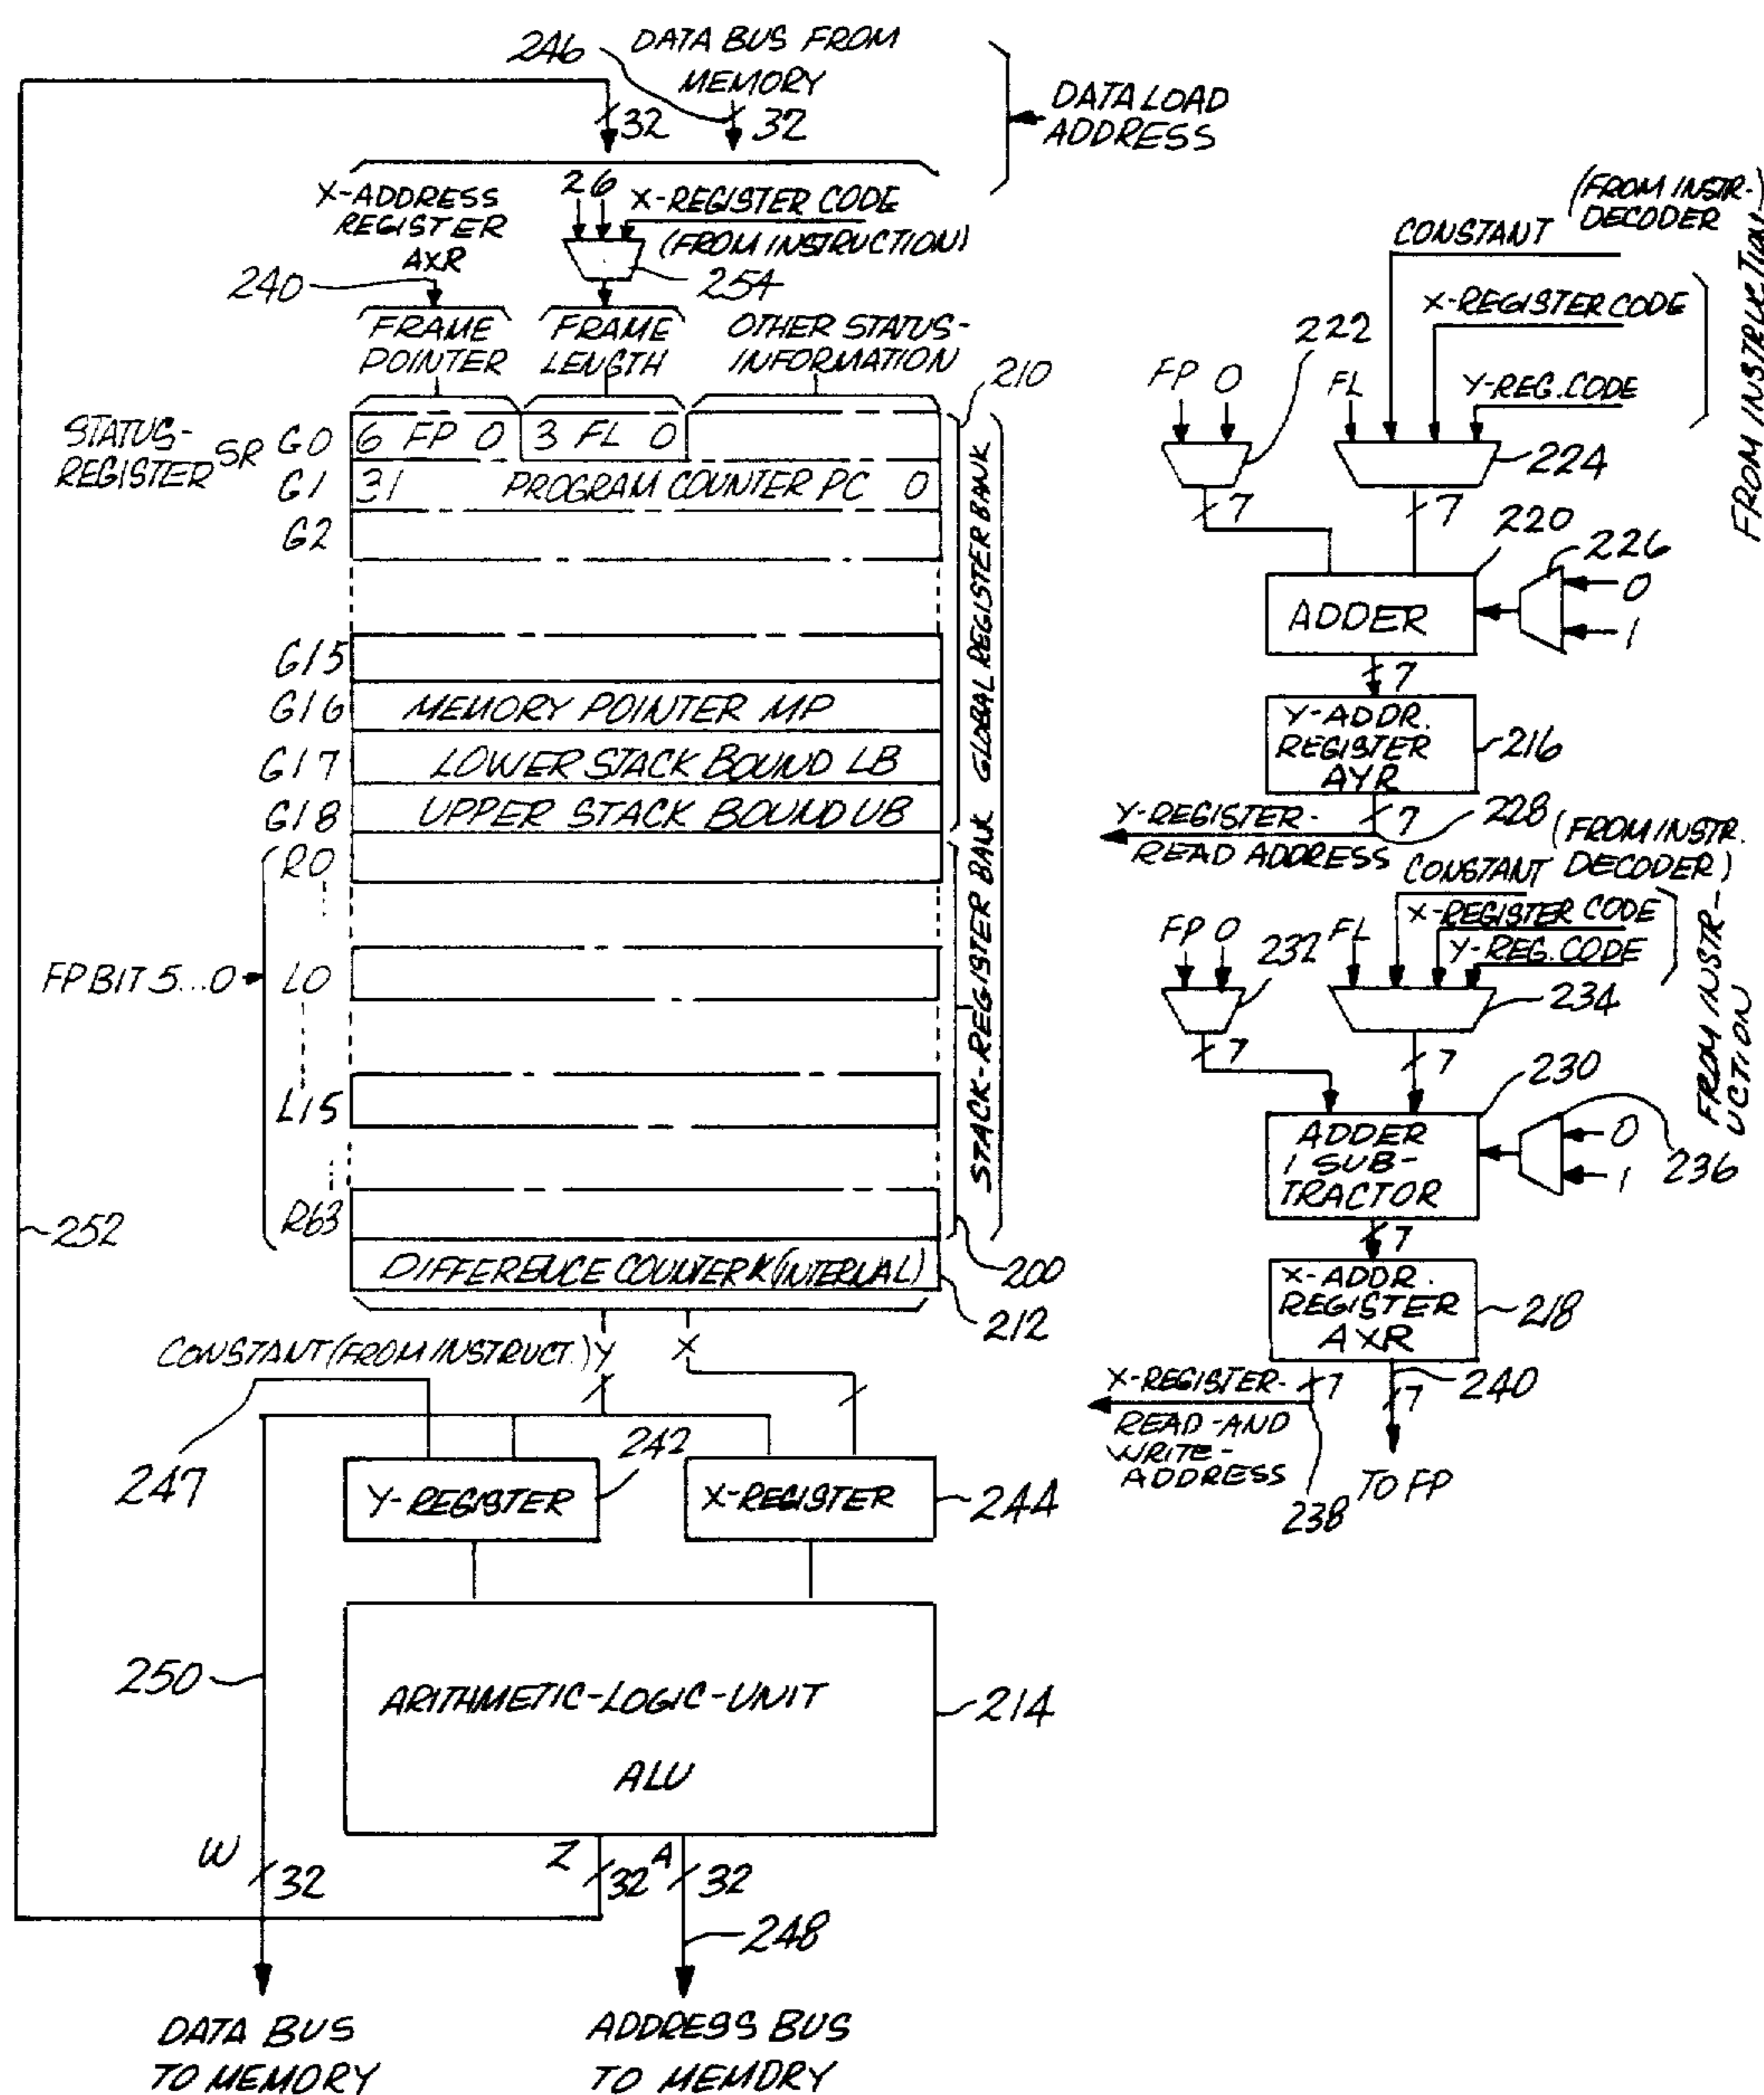 246
DATA BUS FROM
MEMORY
32
32
DATA LOAD
ADDRESS
X-ADDRESS
REGISTER
AXR
240
2 6
X-REGISTER CODE
(FROM INSTRUCTION)
254
FRAME
POINTER
FRAME
LENGTH
OTHER STATUS-
INFORMATION
210
STATUS-
REGISTER
SR G0
6 FP 0
3 FL 0
G1
31 PROGRAM COUNTER PC 0
G2
G15
G16
MEMORY POINTER MP
G17
LOWER STACK BOUND LB
G18
UPPER STACK BOUND UB
R0
FP BIT 5...0
L0
L15
R63
DIFFERENCE COUNTER K (INTERNAL)
GLOBAL REGISTER BANK
STACK-REGISTER BANK
200
212
252
CONSTANT (FROM INSTRUCT.) Y
X
247
242
Y-REGISTER
X-REGISTER
244
250
ARITHMETIC-LOGIC-UNIT
ALU
214
W
32
Z
32
A
32
248
DATA BUS
TO MEMORY
ADDRESS BUS
TO MEMORY
(FROM INSTR-)
DECODER
CONSTANT
X-REGISTER CODE
Y-REG. CODE
FROM INSTRUCTION
222
FP 0
FL
224
7
7
220
226
ADDER
0
1
7
Y-ADDR.
REGISTER
AYR
216
Y-REGISTER-
READ ADDRESS
7
228
(FROM INSTR.
DECODER)
CONSTANT
X-REGISTER CODE
Y-REG. CODE
FROM INSTR-
UCTION
FP 0
232
FL
234
7
7
230
ADDER
/ SUB-
TRACTOR
0
1
236
7
X-ADDR.
REGISTER
AXR
218
X-REGISTER-
READ-AND
WRITE-
ADDRESS
7
7
240
238
TO FP